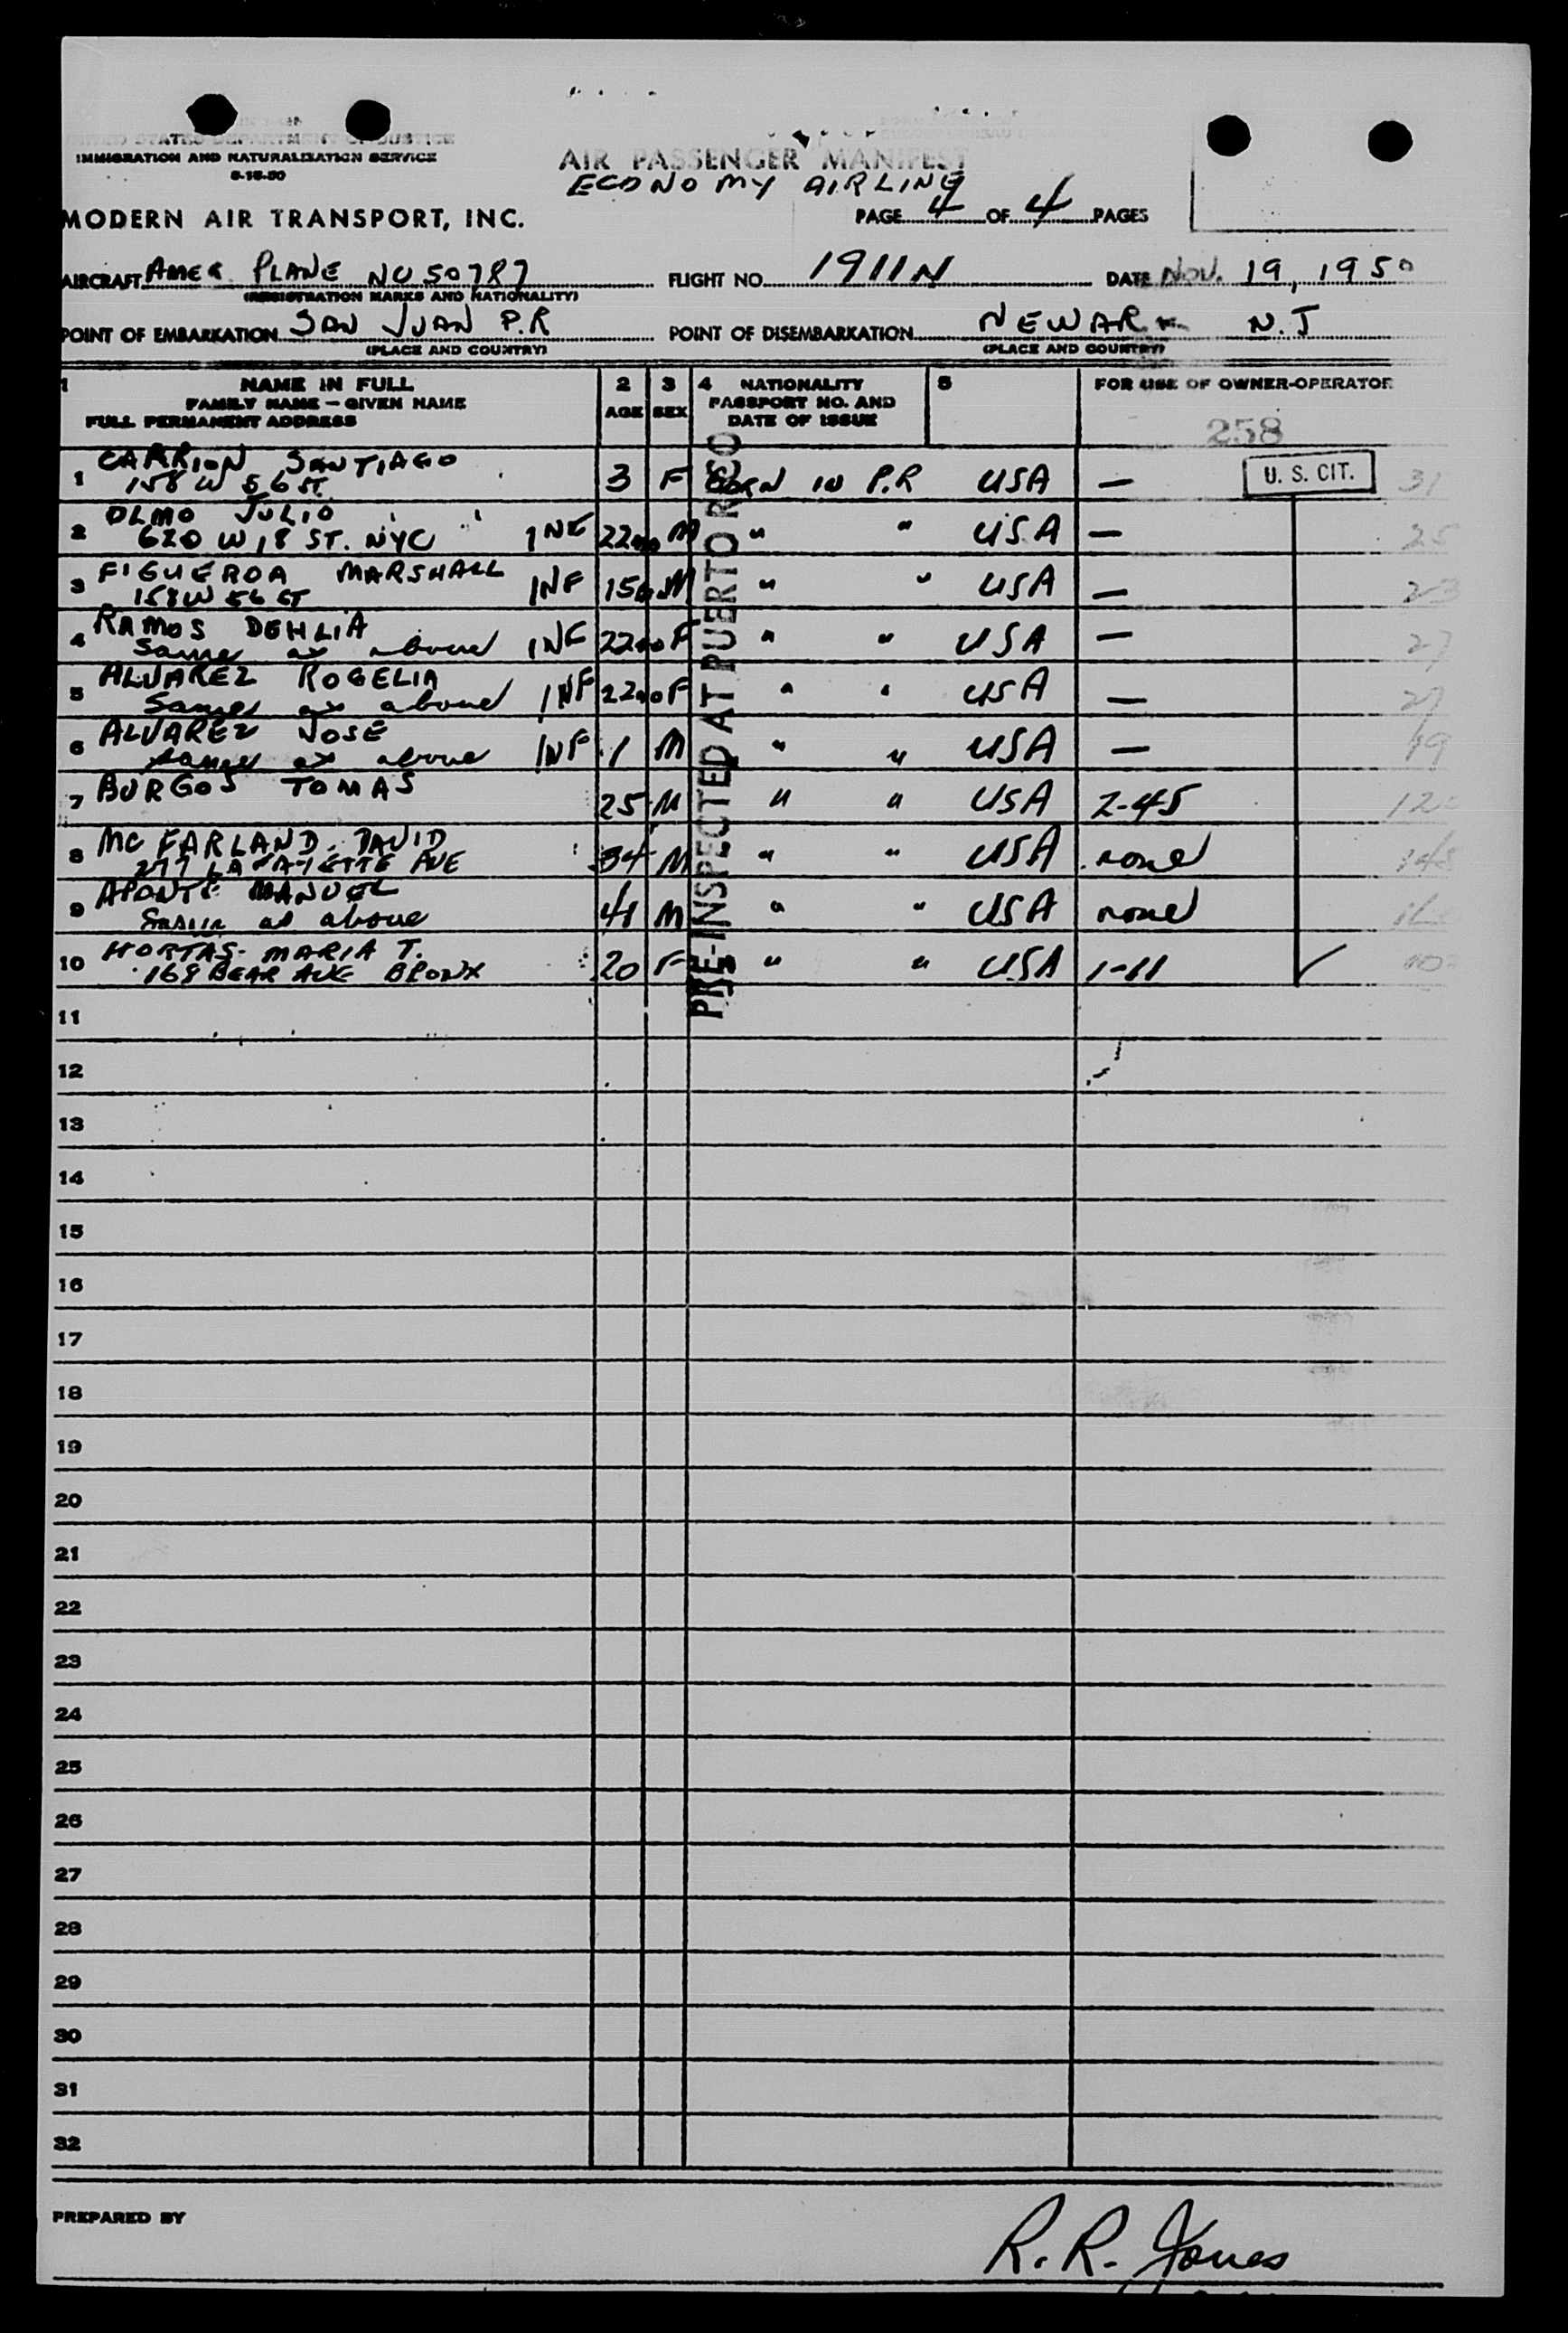 UNITED STATES DEPARTMENT OF JUSTICE
IMMIGRATION AND NATURALIZATION SERVICE
AIR PASSENGER MANIFEST
ECONOMY AIRLINE
MODERN AIR TRANSPORT, INC.
PAGE 4 OF 4 PAGES
AIRCRAFT AMER PLANE NC 50787 FLIGHT NO. 1911N DATE NOV. 19, 1950
(REGISTRATION MARKS AND NATIONALITY)
POINT OF EMBARKATION SAN JUAN P.R POINT OF DISEMBARKATION NEWARK N.J
(PLACE AND COUNTRY) (PLACE AND COUNTRY)
1 NAME IN FULL 2 3 4 NATIONALITY 5 FOR USE OF OWNER-OPERATOR
FAMILY NAME – GIVEN NAME AGE SEX PASSPORT NO. AND
FULL PERMANENT ADDRESS DATE OF ISSUE
258
1 CARRION SANTIAGO 3 F BORN IN P.R USA — U. S. CIT. 31
158 W 56 ST.
2 OLMO JULIO INF 22mo M " " USA — 25
620 W 18 ST. NYC
3 FIGUEROA MARSHALL INF 15 M " " USA — 23
158 W 56 ST
4 RAMOS DEHLIA INF 22mo F " " USA — 27
Same as above
5 ALVAREZ ROGELIA INF 22mo F " " USA — 27
Same as above
6 ALVAREZ JOSE INF 1 M " " USA — 19
same as above
7 BURGOS TOMAS 25 M " " USA 2-45
8 MC FARLAND. DAVID 34 M " " USA none 145
277 LAFAYETTE AVE
9 APONTE MANUEL 41 M " " USA none
Same as above
10 HORTAS- MARIA T. 20 F " " USA 1-11 ✓
168 BEAR AVE BRONX
PRE-INSPECTED AT PUERTO RICO
11
12
13
14
15
16
17
18
19
20
21
22
23
24
25
26
27
28
29
30
31
32
PREPARED BY
R. R. Jones